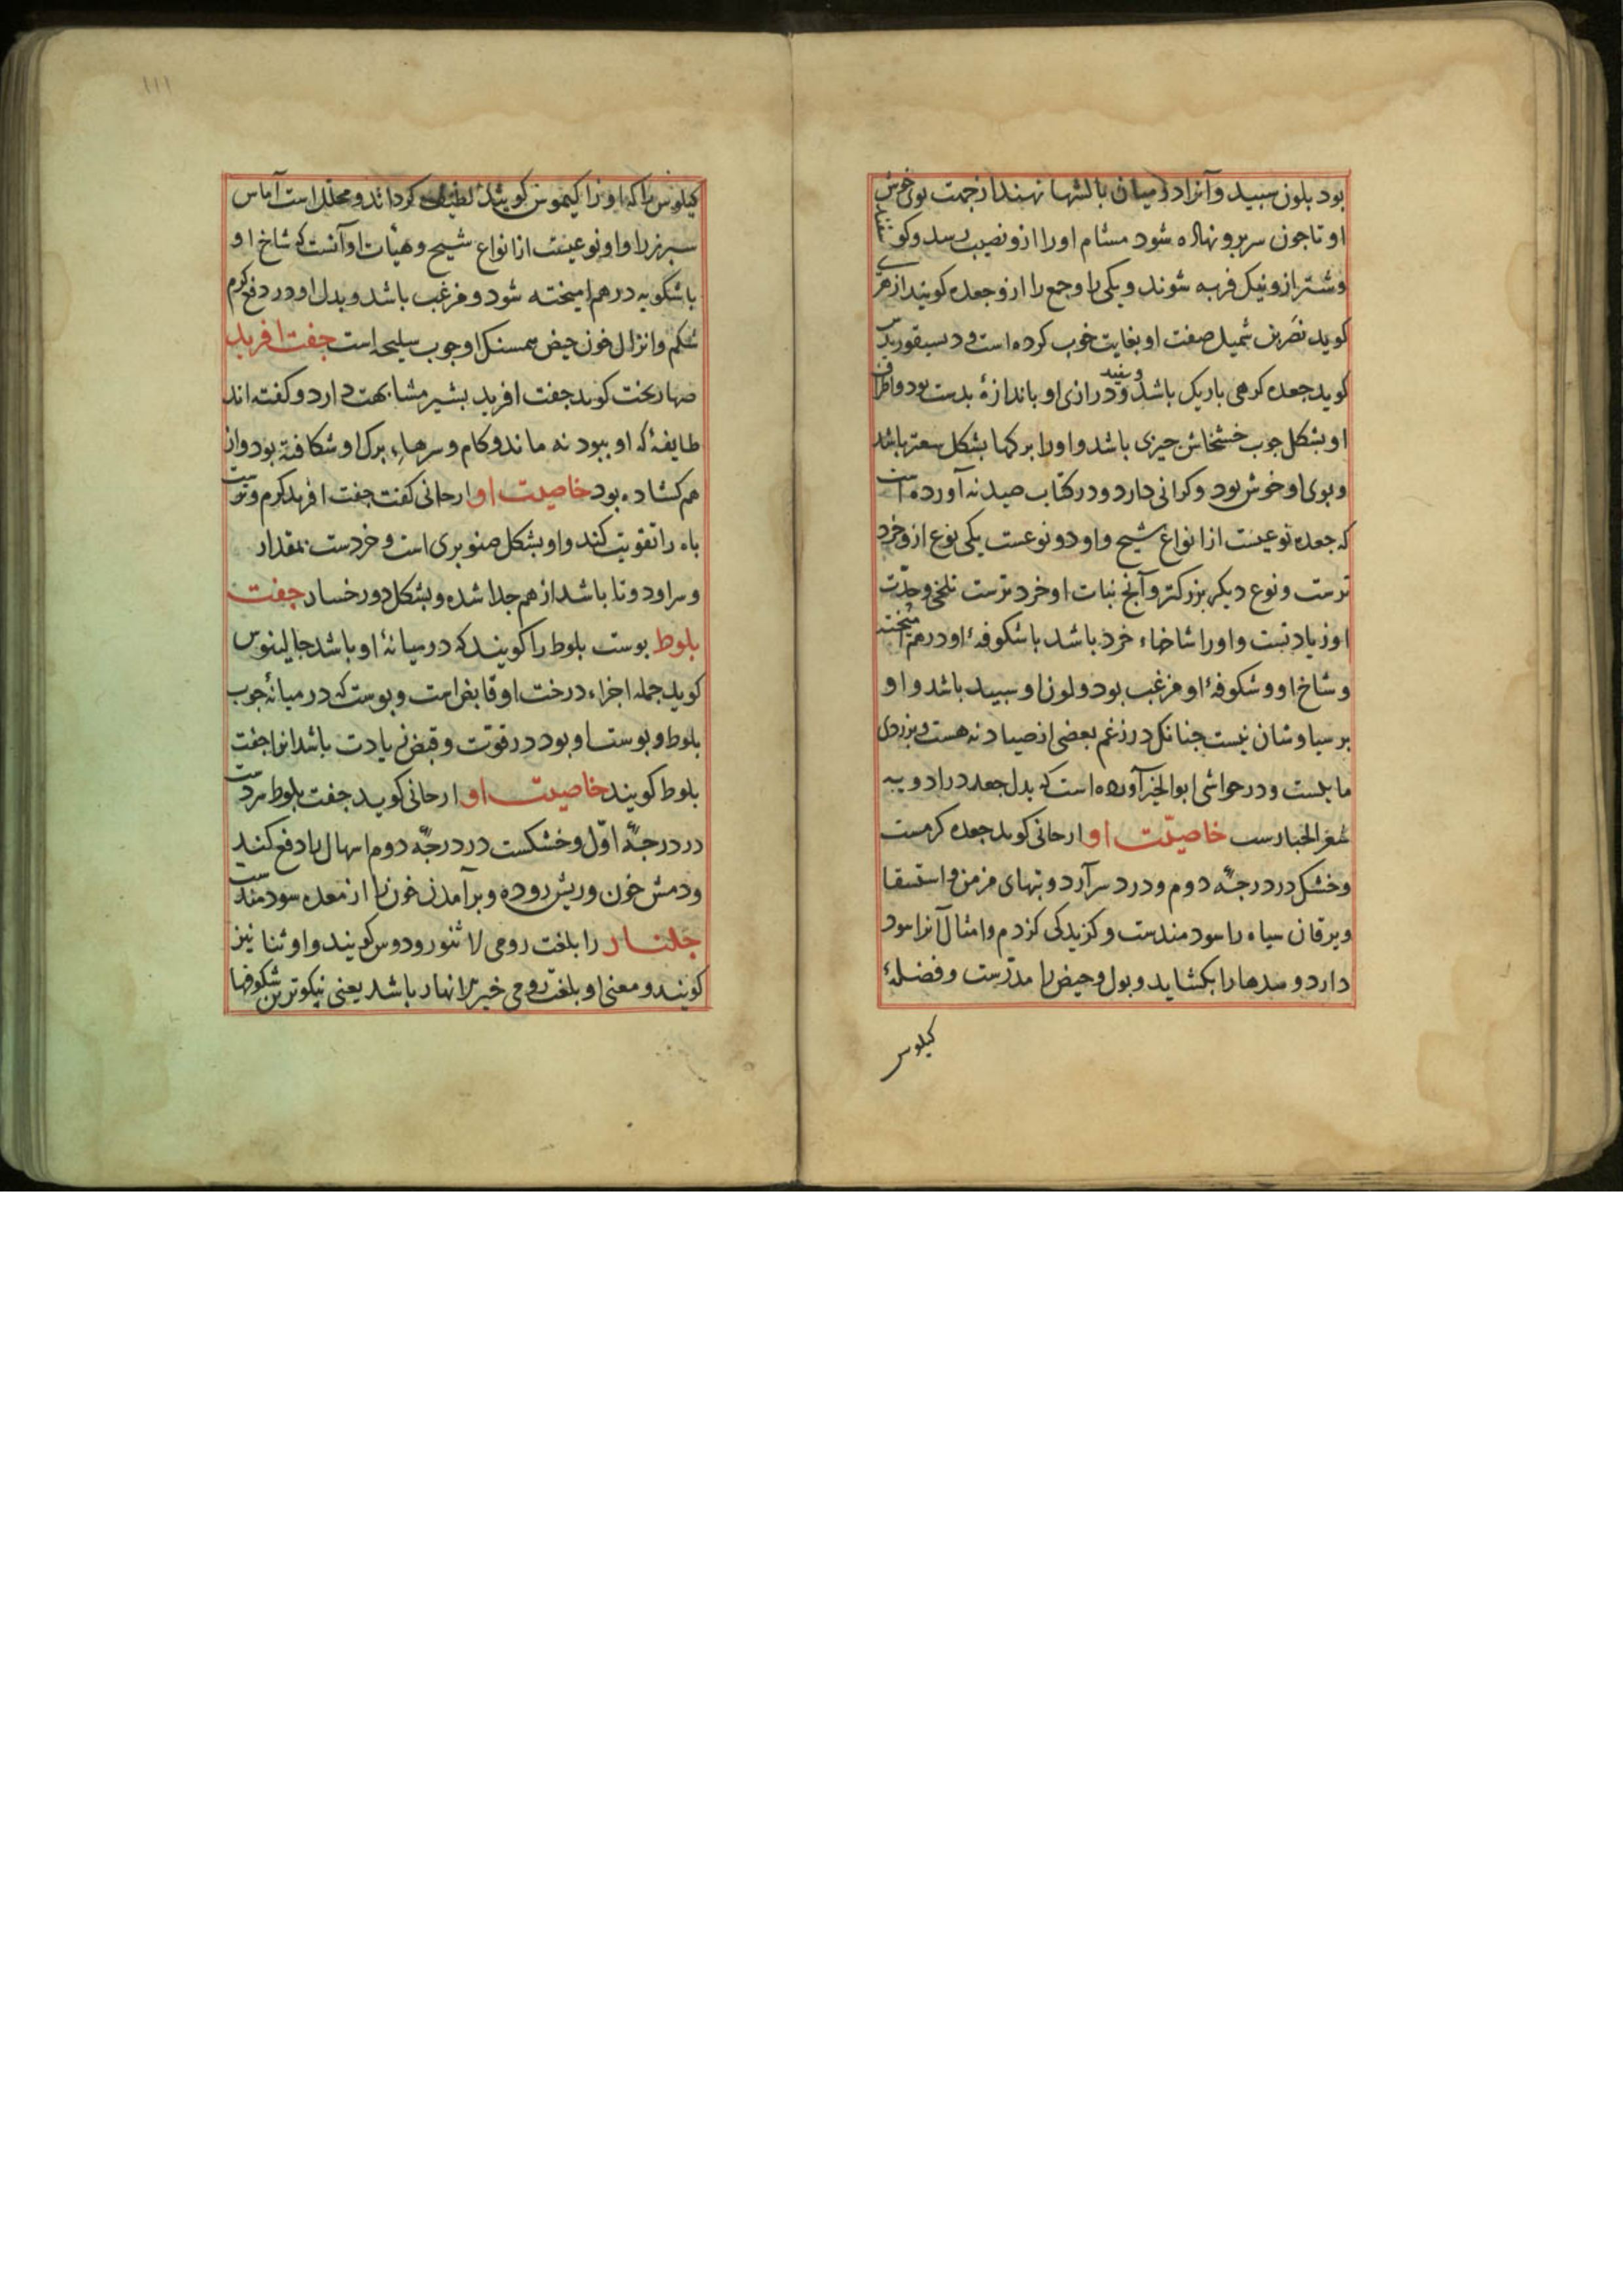 بود بلون سبید و آنرا در میان بالشها نهند از جهت بوی خوش
او تا جون سر برو نهاده شود مشام او را ازو نصیب رسد و کوسفند
و شتر ازو نیک فربه شوند و یکی را و جمع را ازو جعده کویند ازهری
کوید نضر بن شمیل صفت او بغایت خوب کرده است و دیسقوریدس
کوید جعده کرهی باریک باشد و سفید و درازی او باندازهٔ بدست بود و اطراف
او بشکل جوب خشخاش جیزی باشد و او را برکها بشکل سعتر باشد
و بوی او خوش بود و کرانی دارد و در کتاب صیدنه آورده است
که جعده نوعیست از انواع شیح و او دو نوعست یکی نوع ازو خرد
ترست و نوع دیکر بزرکتر و آنج نبات او خرد ترست تلخی و حدّت
او زیادتست و او را شاخهاء خرد باشد با شکوفهٔ او در هم آمیخته
و شاخ او و شکوفهٔ او مزغب بود و لون او سبید باشد و او
برسیاوشان نیست جنانک در زعم بعضی از صیادنه هست و بزردی
مایلست و در حواشی ابوالخیر آورده است که بدل جعده در ادویه
شعر الجبارست خاصیّت او ارجانی کوید جعده کرمست
و خشک در درجهٔ دوم و درد سر آرد و تبهای مزمن و استسقا
و یرقان سیاه را سودمندست و کزیدکی کزدم و امثال آنرا سود
دارد و سدها را بکشاید و بول و حیض را مدرّست و فضلهٔ
کیلوس
۱۱۱
کیلوس را که او را کیموس کویند لطیف کرداند و محلل است آماس
سبرز را و او نوعیست از انواع شیح و هیأت او آنست که شاخ او
با شکوبه در هم امیخته شود و مزغب باشد و بدل او در دفع کرم
شکم و انزال خون حیض همسنک او جوب سلیخه است جفت افرید
صهاربخت کوید جفت افرید بشیر مشابهت دارد و کفته اند
طایفهٔ که او ببود نه ماند و کام و سرهاء برک او شکافته بود و از
هم کشاده بود خاصیت او ارجانی کفت جفت افرید کرم و ترست
باه را تقویت کند و او بشکل صنوبری است و خردست بمقدار
و سر او دو تا باشد از هم جدا شده و بشکل دو رخسار جفت
بلوط بوست بلوط را کویند که در میانهٔ او باشد جالینوس
کوید جمله اجزاء درخت او قابض است و بوست که در میانهٔ جوب
بلوط و بوست او بود در قوّت و قبض زیادت باشد انرا جفت
بلوط کویند خاصیت او ارجانی کوید جفت بلوط سردست
در درجهٔ اوّل و خشکست در درجهٔ دوم اسهال را دفع کند
و دمش خون و ریش روده و برآمدن خون را از معده سودمندست
جلنار را بلغت رومی لاثنورودوس کویند و اوثنا نیز
کویند و معنی او بلغت رومی خیر الانهار باشد یعنی نیکوترین شکوفها